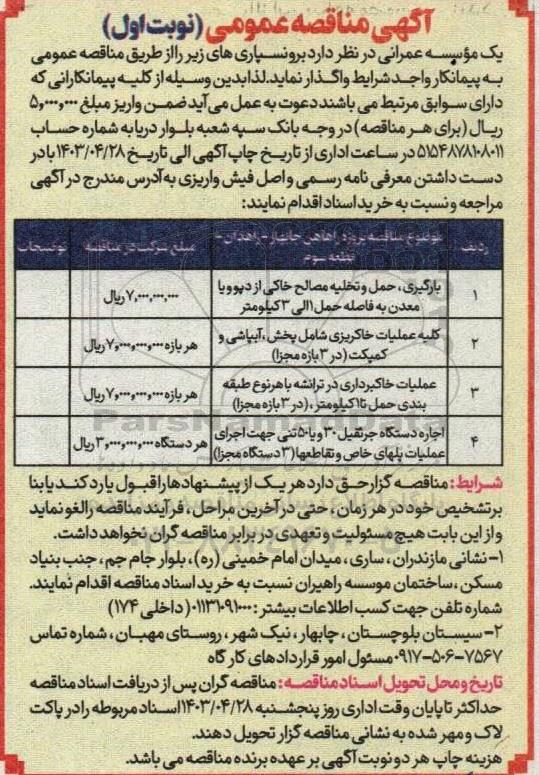 آگهی مناقصه عمومی (نوبت اول)
یک مؤسسه عمرانی در نظر دارد برونسپاری های زیر را از طریق مناقصه عمومی
به پیمانکار واجد شرایط واگذار نماید. لذا بدین وسیله از کلیه پیمانکارانی که
دارای سوابق مرتبط می باشند دعوت به عمل می آید ضمن واریز مبلغ ۵,۰۰۰,۰۰۰
ریال (برای هر مناقصه) در وجه بانک سپه شعبه بلوار دریا به شماره حساب
۵۱۵۴۸۷۸۱۰۸۰۱۱ در ساعت اداری از تاریخ چاپ آگهی الی تاریخ ۱۴۰۳/۰۴/۲۸ با در
دست داشتن معرفی نامه رسمی و اصل فیش واریزی به آدرس مندرج در آگهی
مراجعه و نسبت به خرید اسناد اقدام نمایند:
ردیف موضوع مناقصه پروژه راه آهن چابهار - زاهدان - قطعه سوم مبلغ شرکت در مناقصه توضیحات
۱ بارگیری، حمل و تخلیه مصالح خاکی از دپو و یا معدن به فاصله حمل ۱ الی ۳ کیلومتر ۷,۰۰۰,۰۰۰,۰۰۰ ریال
۲ کلیه عملیات خاکریزی شامل پخش، آبپاشی و کمپکت (در ۳ بازه مجزا) هر بازه ۷,۰۰۰,۰۰۰,۰۰۰ ریال
۳ عملیات خاکبرداری در ترانشه با هر نوع طبقه بندی حمل تا ۱ کیلومتر، (در ۳ بازه مجزا) هر بازه ۷,۰۰۰,۰۰۰,۰۰۰ ریال
۴ اجاره دستگاه جرثقیل ۳۰ و یا ۵۰ تنی جهت اجرای عملیات پلهای خاص و تقاطعها (۳ دستگاه مجزا) هر دستگاه ۳,۰۰۰,۰۰۰,۰۰۰ ریال
شرایط: مناقصه گزار حق دارد هر یک از پیشنهادها را قبول یا رد کند یا بنا
بر تشخیص خود در هر زمان، حتی در آخرین مراحل، فرآیند مناقصه را لغو نماید
و از این بابت هیچ مسئولیت و تعهدی در برابر مناقصه گران نخواهد داشت.
۱- نشانی مازندران، ساری، میدان امام خمینی (ره)، بلوار جام جم، جنب بنیاد
مسکن، ساختمان موسسه راهیران نسبت به خرید اسناد مناقصه اقدام نمایند.
شماره تلفن جهت کسب اطلاعات بیشتر: ۰۱۱۳۱۰۹۱۰۰۰ (داخلی ۱۷۴)
۲- سیستان بلوچستان، چابهار، نیک شهر، روستای مهبان، شماره تماس
۰۹۱۷-۵۰۶-۷۵۶۷ مسئول امور قراردادهای کارگاه
تاریخ و محل تحویل اسناد مناقصه: مناقصه گران پس از دریافت اسناد مناقصه
حداکثر تا پایان وقت اداری روز پنجشنبه ۱۴۰۳/۰۴/۲۸ اسناد مربوطه را در پاکت
لاک و مهر شده به نشانی مناقصه گزار تحویل دهند.
هزینه چاپ هر دو نوبت آگهی بر عهده برنده مناقصه می باشد.